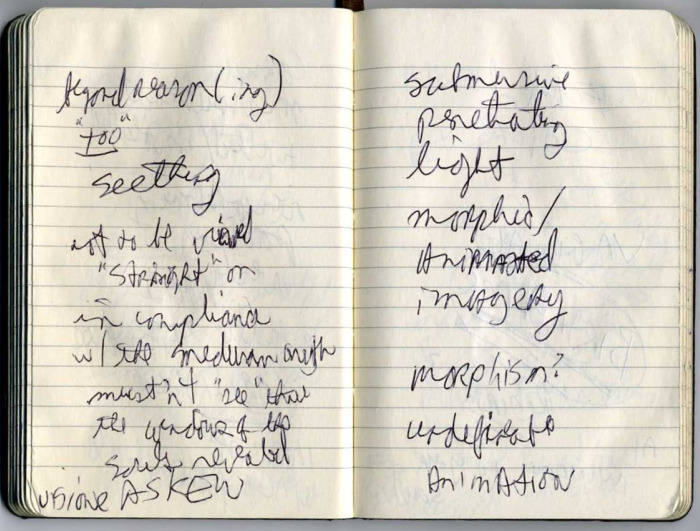 beyond reason(ing)
"too"
seething
not to be viewed
"straight" on
in compliance
w/ the medusan
mustn't "see" thru
the windows of the
souls revealed
visione ASKEW
submersive
penetrating
light
morphed/
Animated
imagery
morphism?
Animation